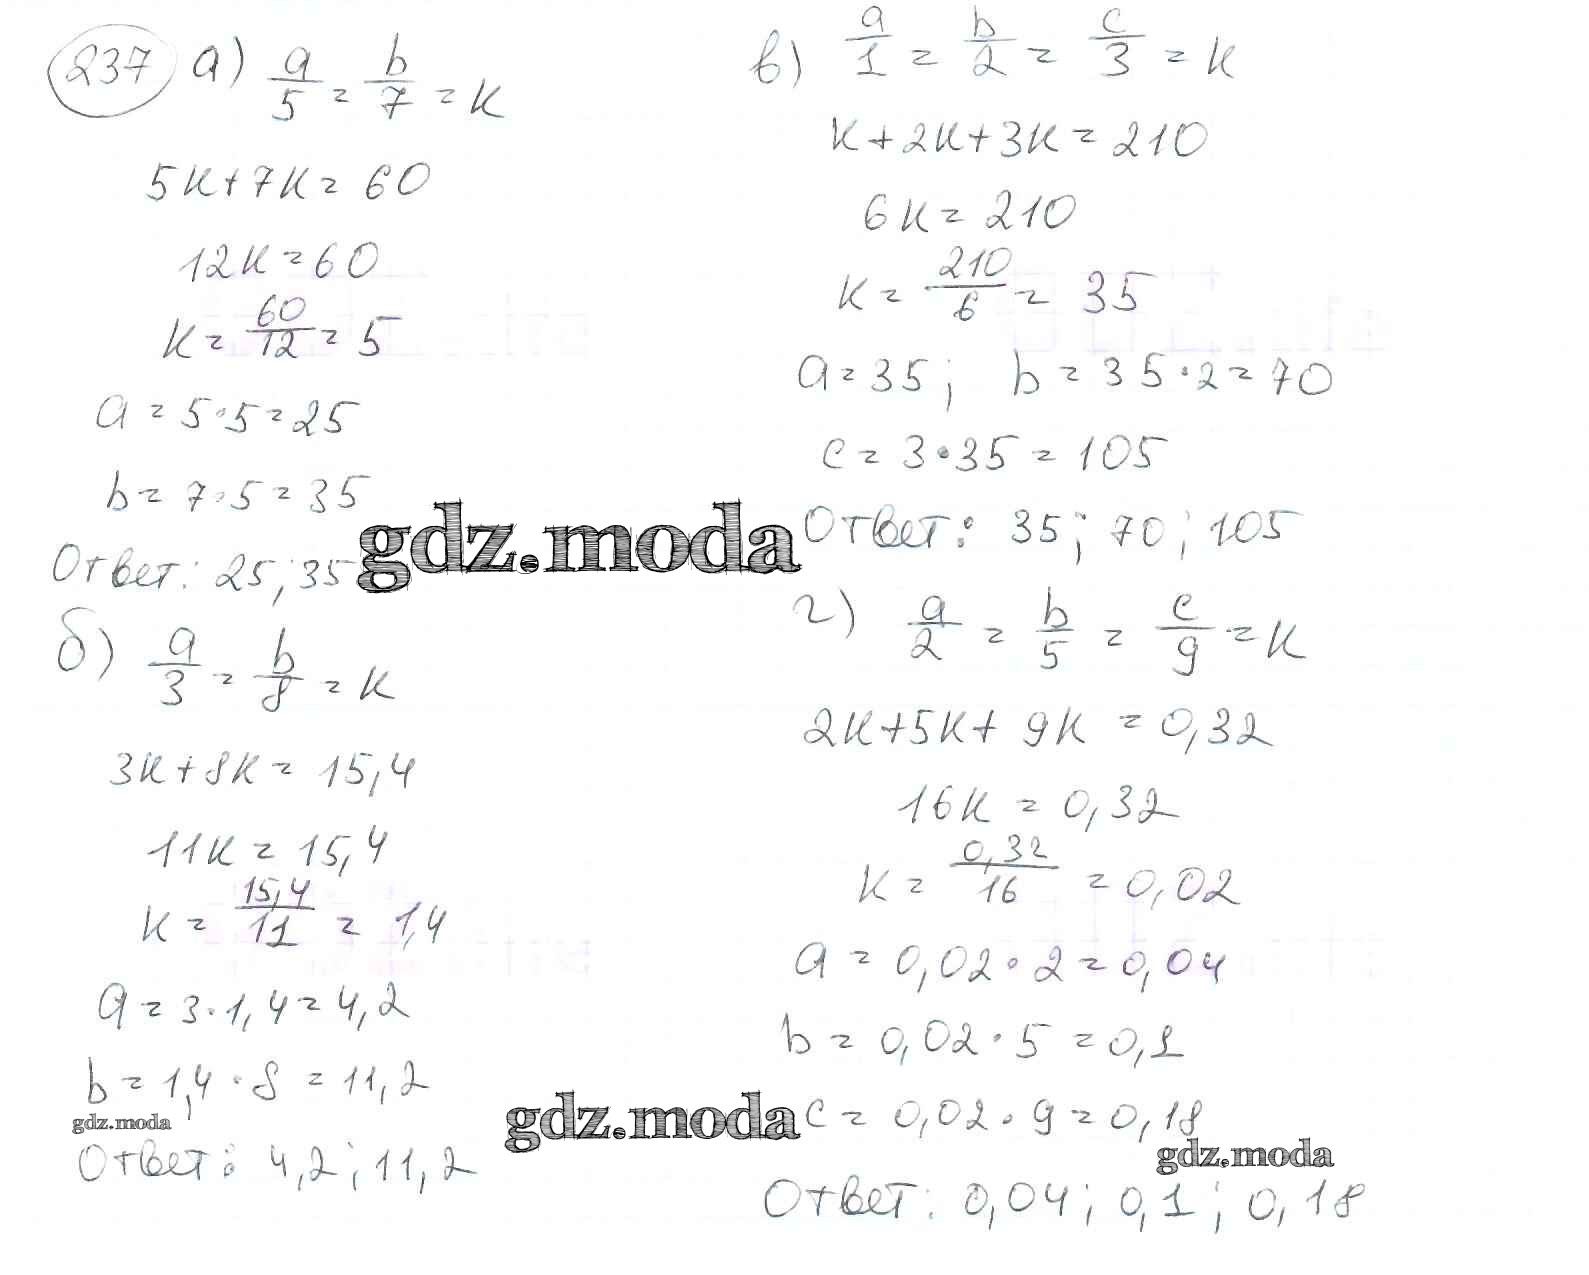 237 а) a/5 = b/7 = k
5k + 7k = 60
12k = 60
k = 60/12 = 5
a = 5·5 = 25
b = 7·5 = 35
Ответ: 25; 35
б) a/3 = b/8 = k
3k + 8k = 15,4
11k = 15,4
k = 15,4/11 = 1,4
a = 3·1,4 = 4,2
b = 1,4·8 = 11,2
gdz.moda
Ответ: 4,2; 11,2
gdz.moda
gdz.moda
в) a/1 = b/2 = c/3 = k
k + 2k + 3k = 210
6k = 210
k = 210/6 = 35
a = 35; b = 35·2 = 70
c = 3·35 = 105
Ответ: 35; 70; 105
г) a/2 = b/5 = c/9 = k
2k + 5k + 9k = 0,32
16k = 0,32
k = 0,32/16 = 0,02
a = 0,02·2 = 0,04
b = 0,02·5 = 0,1
c = 0,02·9 = 0,18
gdz.moda
Ответ: 0,04; 0,1; 0,18